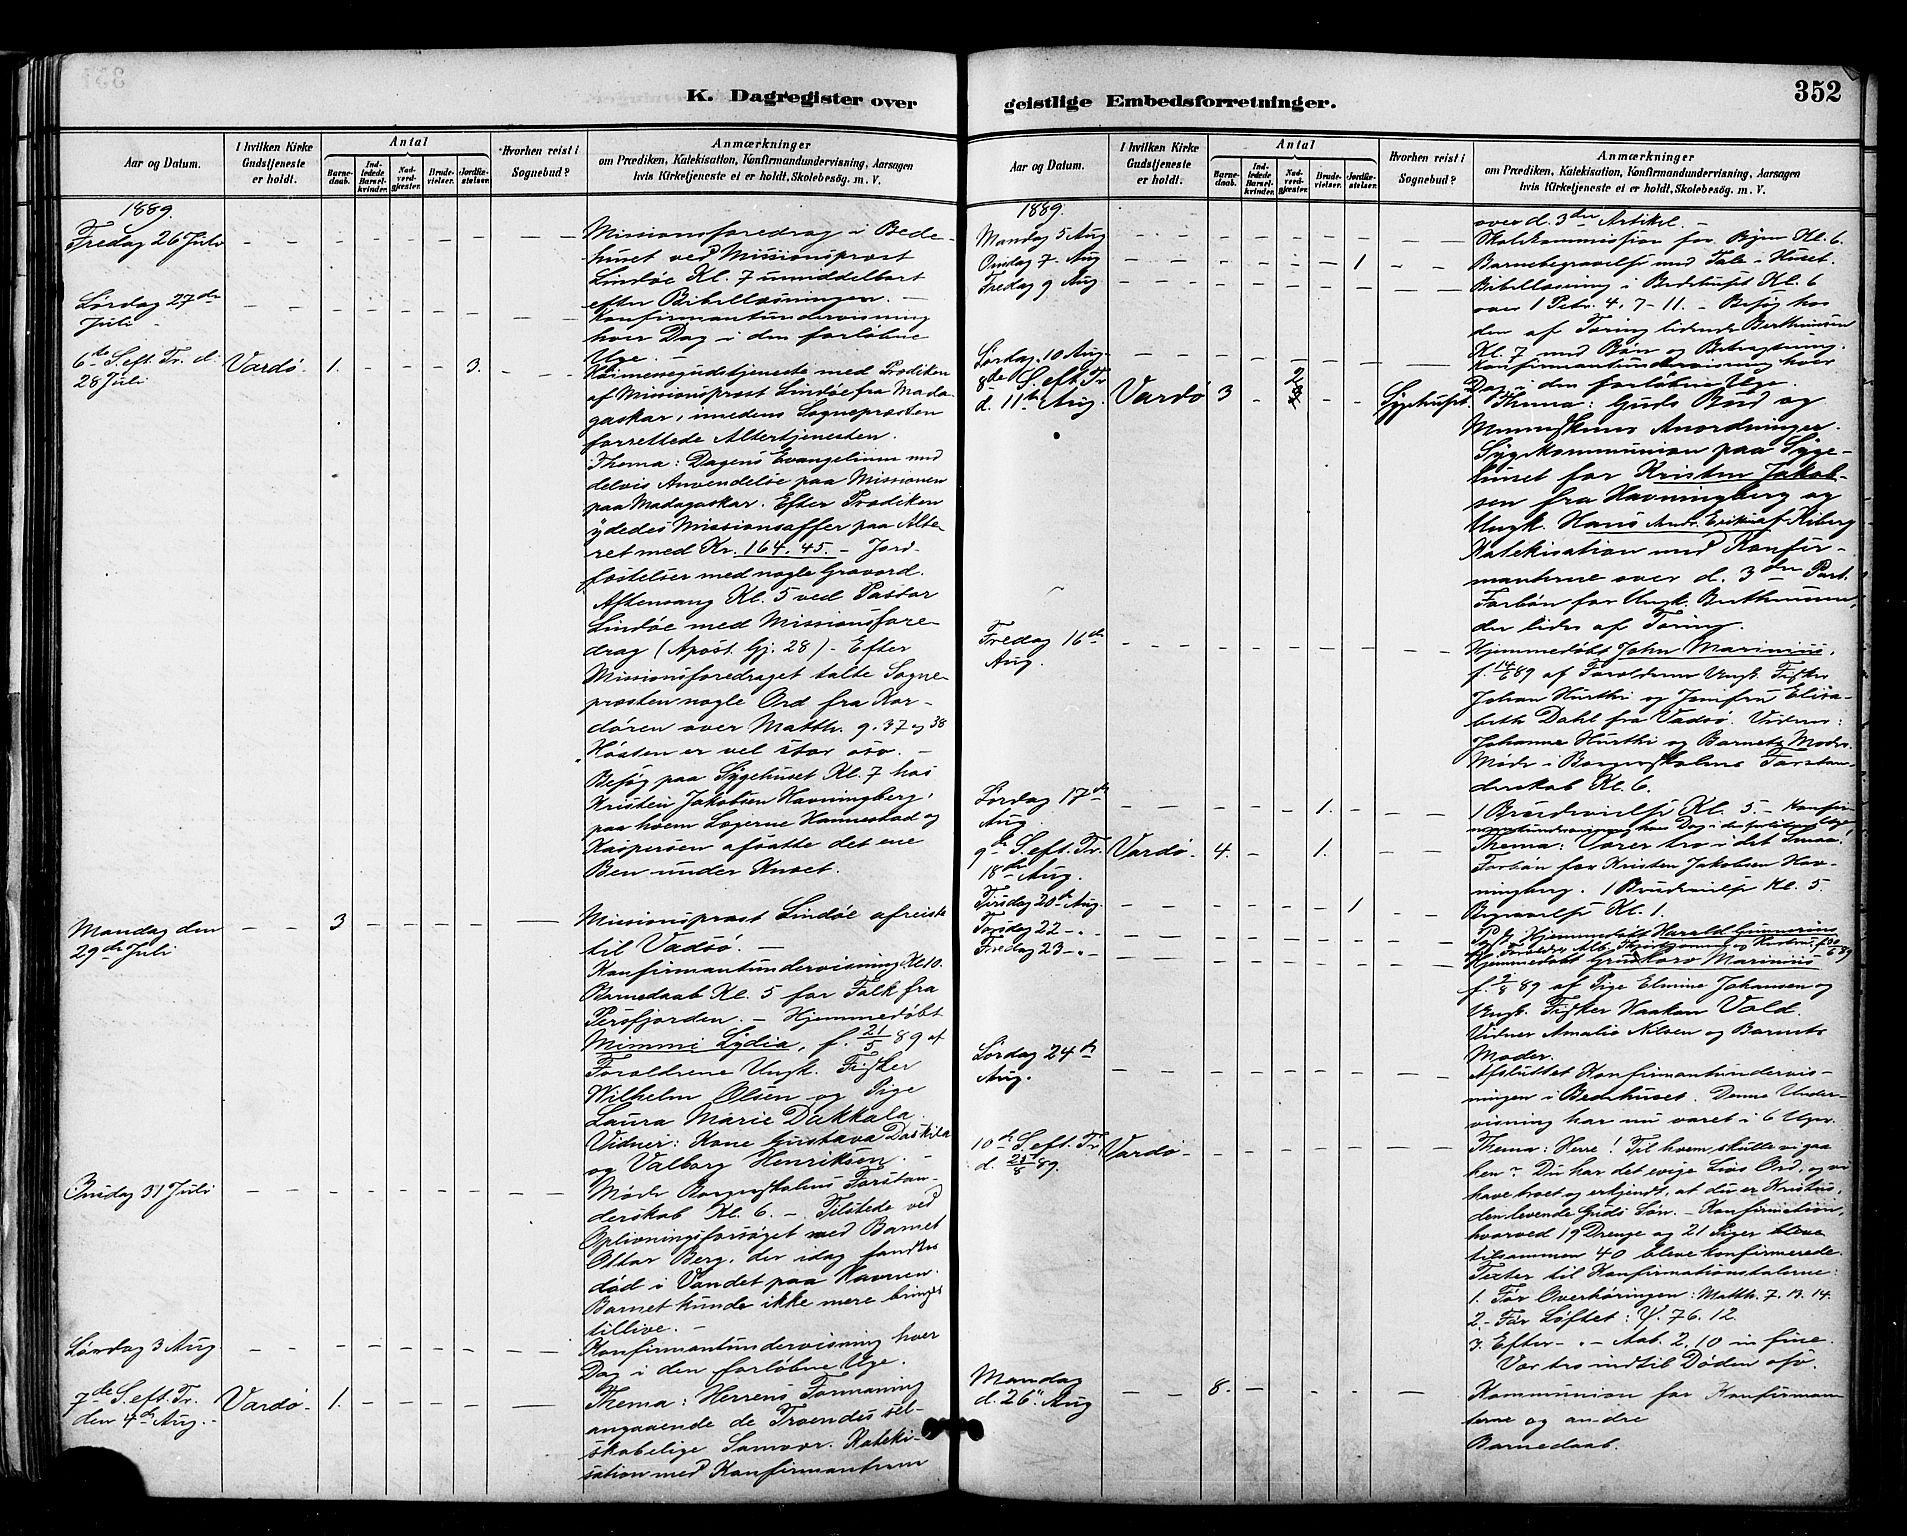 352
K. Dagregister over
geistlige Embedsforretninger.
Aar og Datum.
I hvilken Kirke
Gudstjeneste
er holdt.
Antal
Barne-
daab.
Ind-
ledede
Barsel-
kvinder.
Nad-
verd-
gjester.
Brude-
vielser.
Jordfæ-
stelser.
Hvorhen reist i
Sognebud?
Anmærkninger
om Prædiken, Katekisation, Konfirmandundervisning, Aarsagen
hvis Kirketjeneste ei er holdt, Skolebesøg. m. V.
1889.
Fredag 26 Juli
Missionsforedrag i Bede-
huset ved Missionsprest
Lindøe Kl. 7 umiddelbart
efter Bibellæsningen. -
Lørdag 27de
Juli -
Konfirmantundervisning
hver Dag i den forløbne
Uge. -
6te S. eft. Tr. d.
28 Juli
Vardø
1.
3.
Høimessegudstjeneste med Prædiken
af Missionsprest Lindøe fra Mada-
gaskar, imedens Sognepresten
forrettede Altertjenesten.
Thema: Dagens Evangelium med
delvis Anvendelse paa Missionen
paa Madagaskar. Efter Prædiken
ydedes Missionsoffer paa Alte-
ret med Kr. 164.45. - Jord-
fæstelser med nogle Gravord.
Aftensang Kl. 5 ved Pastor
Lindøe med Missionsfore-
drag (Apost. Gj. 28) - Efter
Missionsforedraget talte Sogne-
presten nogle Ord fra Kor-
døren over Matth. 9.37 og 38
"Høsten er vel stor osv. -
Besøg paa Sygehuset Kl. 7 hos
Kristen Jakobsen Havningberg,
paa hvem Lægerne Hannestad og
Kaspersen afsatte det ene
Ben under Knæet.
Mandag den
29de Juli
3
Missionsprest Lindøe afreiste
til Vadsø. -
Konfirmantundervisning Kl. 10.
Barnedaab Kl. 5 for Folk fra
Persfjorden. - Hjemmedøbt
Mimmi Lydia, f. 21/5 89 af
Forældrene Ungk. Fisker
Wilhelm Olsen og Pige
Laura Marie Dakkala.
Vidner: Kone Gustava Daskila
og Valborg Henriksen. -
Onsdag 31 Juli
Møde Borgerskolens Forstan-
derskab Kl. 6. - Tilstede ved
Oplivningsforsøget med Barnet
Ottar Berg, der idag fandtes
død i Vandet paa Havnen.
Barnet kunde ikke mere bringes
tillive. -
Lørdag 3 Aug
Konfirmantundervisning hver
Dag i den forløbne Uge.
7de S. eft. Tr.
den 4de Aug.
Vardø
1.
Thema: Herrens Formaning
angaaende de Troendes sel-
skabelige Samvær. Kateki-
sation med Konfirmanterne
Aar og Datum.
I hvilken Kirke
Gudstjeneste
er holdt.
Antal
Barne-
daab.
Ind-
ledede
Barsel-
kvinder.
Nad-
verd-
gjester.
Brude-
vielser.
Jordfæ-
stelser.
Hvorhen reist i
Sognebud?
Anmærkninger
om Prædiken, Katekisation, Konfirmandundervisning, Aarsagen
hvis Kirketjeneste ei er holdt, Skolebesøg. m. V.
1889.
over d. 3die Artikel. -
Mandag 5 Aug
Skolekommission for Byen Kl. 6.
Onsdag 7. Aug
1
Barnebegravelse med Tale i Huset.
Fredag 9 Aug
Bibellæsning i Bedehuset Kl. 6
over 1 Petr. 4, 7-11. - Besøg hos
den af Tæring lidende Berthinusen
Kl. 7 med Bøn og Betragtning.
Lørdag 10 Aug.
Konfirmantundervisning hver
Dag i den forløbne Uge.
8de S. eft. Tr
d. 11te Aug.
Vardø
3
2
Sygehuset.
Thema: Guds Bud og
Menneskenes Anordninger.
Sygekommunion paa Syge-
huset for Kristen Jakob-
sen fra Havningberg og
Ungk. Hans Andr. af Kiberg
Katekisation med Konfir-
manterne over d. 3die Part.
Forbøn for Ungk. Berthinusen,
der lider af Tæring.
Fredag 16de
Aug.
Hjemmedøbt John Marinius,
f. 14/6 89 af Forældrene Ungk. Fisker
Johan Hurthi og Jomfru Elisa-
beth Dahl fra Vadsø. Vidner:
Johanne Hurthi og Barnets Moder.
Møde i Borgerskolens Forstan-
derskab Kl. 6.
Lørdag 17de
Aug.
1.
1 Brudevielse Kl. 5 - Konfir-
mantundervisning hver Dag i den forløbne Uge.
9de S. eft. Tr.
18de Aug.
Vardø
4.
1.
Thema: Værer tro i det Smaa.
Forbøn for Kristen Jakobsen Hav-
ningberg. 1 Brudevielse Kl. 5.
Tirsdag 20de Aug.
1
Begravelse Kl. 1.
Torsdag 22 - "
Hjemmedøbt Harald Gunnerius
Fredag 23 - "
Hjemmedøbt Marinius
f. 2/8 89 af Pige Elmine Johansen og
Ungk. Fisker Haakon Vold.
Vidner Amalie Nilsen og Barnets
Moder.
Lørdag 24de
Aug.
Afsluttet Konfirmantundervis-
ningen i Bedehuset. Denne Under-
visning har nu varet i 6 Uger.
10de S. eft. Tr
d. 25/8 89.
Vardø
Thema: Herre! Til hvem skulle vi gaa
hen? Du har det evige Livs Ord, og vi
have troet og erkjendt, at du er Kristus,
den levende Guds Søn. - Konfirmation,
hvorved 19 Drenge og 21 Piger bleve
tilsammen 40 bleve konfirmerede.
Texter til Konfirmationstalerne:
1. Før Overhøringen: Matth. 7. 13. 14.
2. Før Løftet: Ψ. 76. 12.
3. Efter - " - Aab. 2, 10 in fine.
Vær tro indtil Døden osv.
Mandag
d. 26" Aug
8.
Kommunion for Konfirman-
terne og andre
Barnedaab.